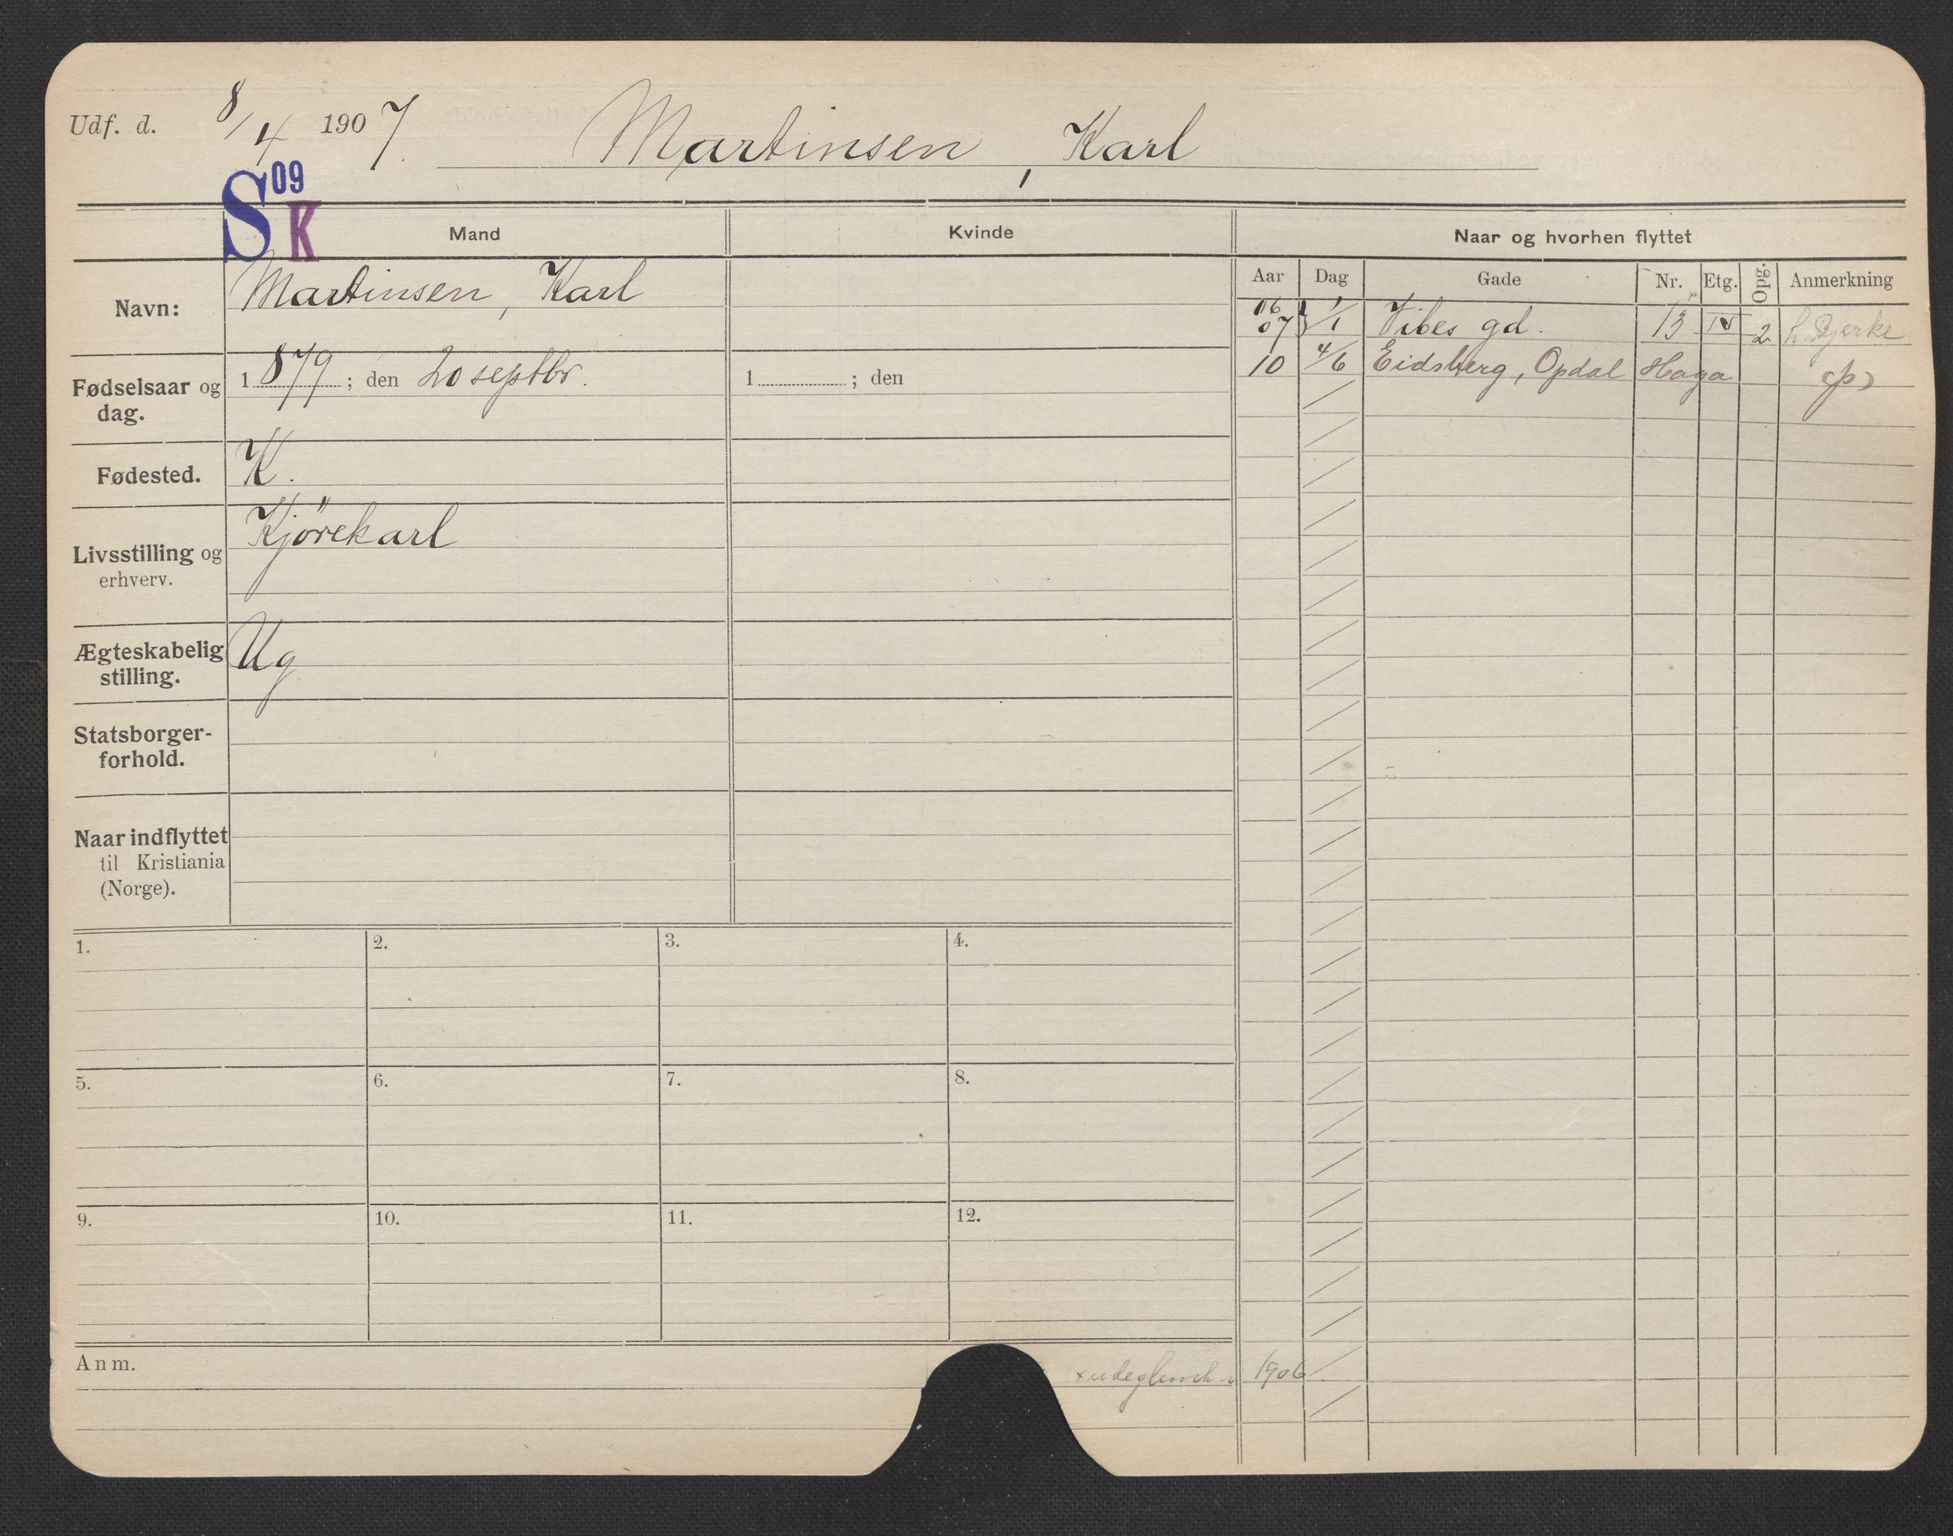 Udf. d. 8/4 1907. Martinsen, Karl
S 09 K
Mand Kvinde Naar og hvorhen flyttet
Aar Dag Gade Nr. Etg. Opg. Anmerkning
Navn: Martinsen, Karl
06
07 1/1 Vibes gd. 13 IV 2 h. Bjerke
Fødselsaar og dag. 1879; den 20 septbr. 1 ; den
10 4/6 Eidsberg, Opdal Haga (p)
Fødested. K.
Livsstilling og Kjörekarl
erhverv.
Ægteskabelig Ug
stilling.
Statsborger-
forhold.
Naar indflyttet
til Kristiania
(Norge).
1. 2. 3. 4.
5. 6. 7. 8.
9. 10. 11. 12.
Anm. 1906